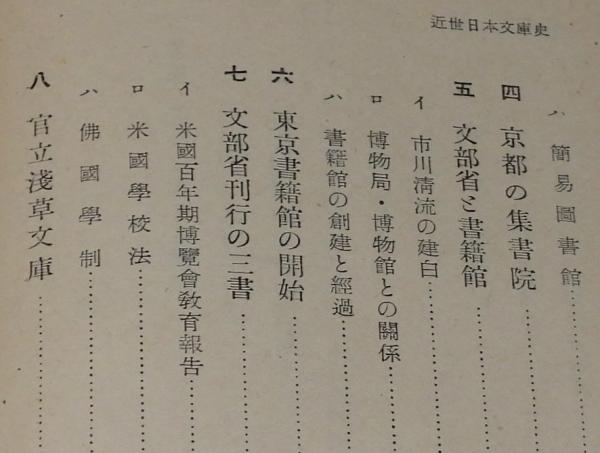 近世日本文庫史
ハ 簡易圖書館
四 京都の集書院
五 文部省と書籍館
イ 市川淸流の建白
ロ 博物局・博物館との關係
ハ 書籍館の創建と經過
六 東京書籍館の開始
七 文部省刊行の三書
イ 米國百年期博覽會敎育報告
ロ 米國學校法
ハ 佛國學制
八 官立淺草文庫